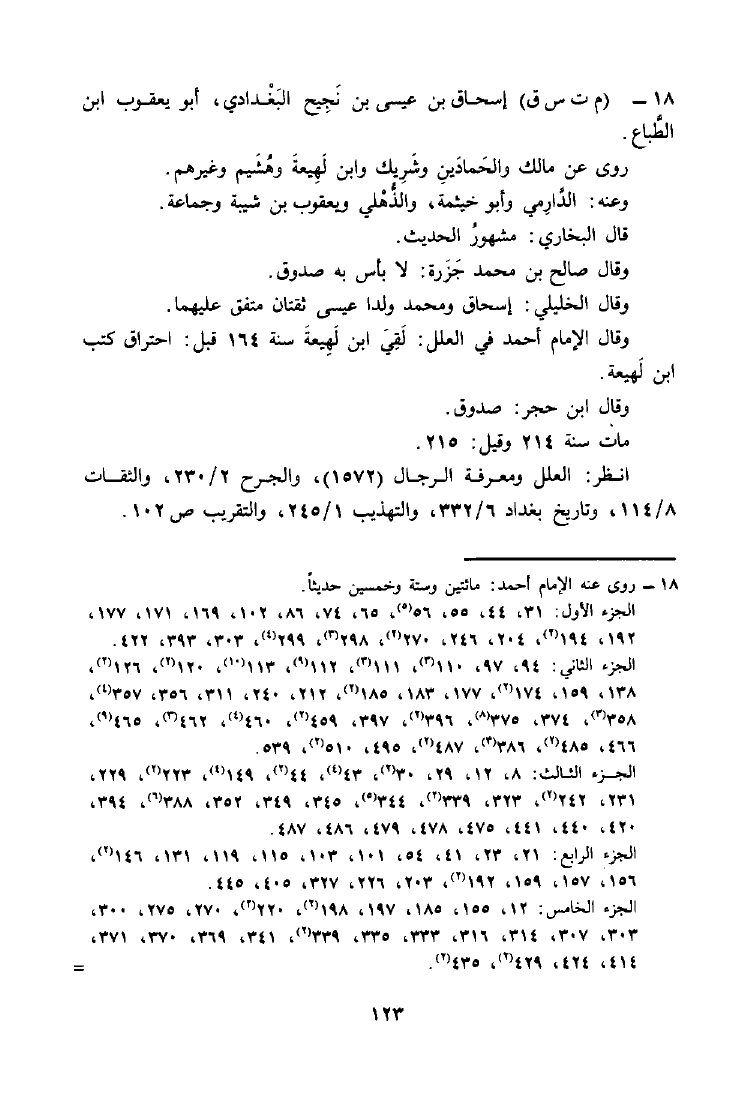 ١٨ – (م ت س ق) إسحاق بن عيسى بن نَجِيح البَغْدادي، أبو يعقوب ابن
الطَّباع.
روى عن مالك والحَمادَينِ وشَرِيك وابن لَهِيعةَ وهُشَيم وغيرهم.
وعنه: الدَّارِمي وأبو خيثمة، والذُّهْلي ويعقوب بن شيبة وجماعة.
قال البخاري: مشهورُ الحديث.
وقال صالح بن محمد جَزَرة: لا بأس به صدوق.
وقال الخليلي: إسحاق ومحمد ولدا عيسى ثقتان متفق عليهما.
وقال الإمام أحمد في العلل: لَقِيَ ابن لَهِيعةَ سنة ١٦٤ قبل: احتراق كتب
ابن لَهيعة.
وقال ابن حجر: صدوق.
مات سنة ٢١٤ وقيل: ٢١٥.
انظر: العلل ومعرفة الرجال (١٥٧٢)، والجرح ٢٣٠/٢، والثقات
١١٤/٨، وتاريخ بغداد ٣٣٢/٦، والتهذيب ٢٤٥/١، والتقريب ص١٠٢.
١٨ – روى عنه الإمام أحمد: مائتين وستة وخمسين حديثاً.
الجزء الأول: ٣١، ٤٤، ٥٥، ٥٦(٥)، ٦٥، ٧٤، ٨٦، ١٠٢، ١٦٩، ١٧١، ١٧٧،
١٩٢، ١٩٤(٢)، ٢٠٤، ٢٤٦، ٢٧٠(٢)، ٢٩٨(٣)، ٢٩٩(٤)، ٣٠٣، ٣٩٣، ٤٢٢.
الجزء الثاني: ٩٤، ٩٧، ١١٠(٣)، ١١١(٣)، ١١٢(٩)، ١١٣(١٠)، ١٢٠(٢)، ١٢٦(٢)،
١٣٨، ١٥٩، ١٧٤(٢)، ١٧٧، ١٨٣، ١٨٥(٢)، ٢١٢، ٢٤٠، ٣١١، ٣٥٦، ٣٥٧(٤)،
٣٥٨(٣)، ٣٧٤، ٣٧٥(٨)، ٣٩٦(٢)، ٣٩٧، ٤٥٩(٢)، ٤٦٠(٤)، ٤٦٢(٣)، ٤٦٥(٩)،
٤٦٦، ٤٨٥(٢)، ٣٨٦(٣)، ٤٨٧(٢)، ٤٩٥، ٥١٠(٢)، ٥٣٩.
الجزء الثالث: ٨، ١٢، ٢٩، ٣٠(٢)، ٤٣(٤)، ٤٤(٢)، ١٤٩(٤)، ٢٢٣(٢)، ٢٢٩،
٢٣١، ٢٤٢(٢)، ٣٢٣، ٣٣٩(٢)، ٣٤٤(٥)، ٣٤٥، ٣٤٩، ٣٥٢، ٣٨٨(٦)، ٣٩٤،
٤٢٠، ٤٤٠، ٤٤١، ٤٧٥، ٤٧٨، ٤٧٩، ٤٨٦، ٤٨٧.
الجزء الرابع: ٢١، ٢٣، ٤١، ٥٤، ١٠١، ١٠٣، ١١٥، ١١٩، ١٣١، ١٤٦(٢)،
١٥٦، ١٥٧، ١٥٩، ١٩٢(٢)، ٢٠٣، ٢٢٦، ٣٢٧، ٤٠٥، ٤٤٥.
الجزء الخامس: ١٢، ١٥٥، ١٨٥، ١٩٧، ١٩٨(٢)، ٢٢٠(٢)، ٢٧٠، ٢٧٥، ٣٠٠،
٣٠٣، ٣٠٧، ٣١٤، ٣١٦، ٣٣٣، ٣٣٥، ٣٣٩(٢)، ٣٤١، ٣٦٩، ٣٧٠، ٣٧١،
٤١٤، ٤٢٤، ٤٢٩(٢)، ٤٣٥(٢).
=
١٢٣